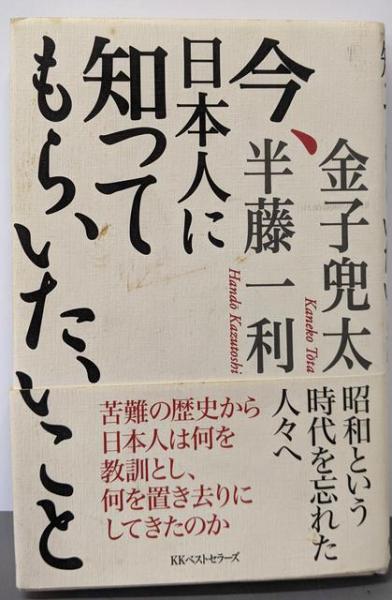 金子兜太
Kaneko Tōta
半藤一利
Handō Kazutoshi
今、
日本人に
知って
もらいたいこと
昭和という
時代を忘れた
人々へ
苦難の歴史から
日本人は何を
教訓とし、
何を置き去りに
してきたのか
KKベストセラーズ